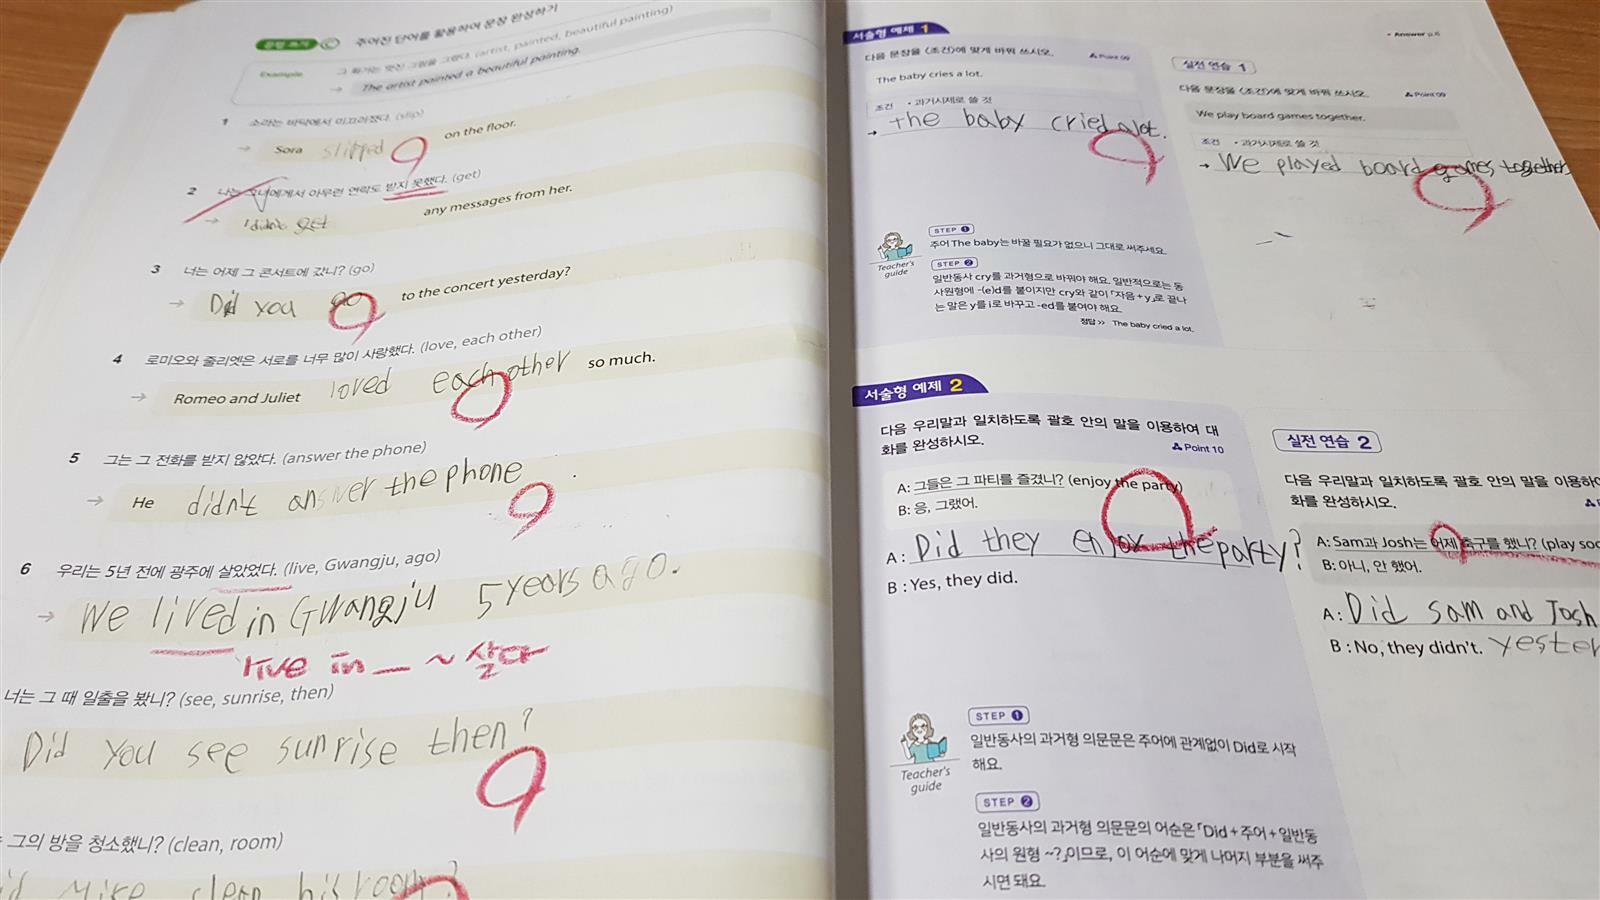 문법 쓰기 C 주어진 단어를 활용하여 문장 완성하기
Example 그 화가는 멋진 그림을 그렸다. (artist, painted, beautiful painting)
→ The artist painted a beautiful painting.
1 소라는 바닥에서 미끄러졌다. (slip)
→ Sora slipped on the floor.
2 나는 그녀에게서 아무런 연락도 받지 못했다. (get)
→ I didn't get any messages from her.
3 너는 어제 그 콘서트에 갔니? (go)
→ Did you go to the concert yesterday?
4 로미오와 줄리엣은 서로를 너무 많이 사랑했다. (love, each other)
→ Romeo and Juliet loved each other so much.
5 그는 그 전화를 받지 않았다. (answer the phone)
→ He didn't answer the phone.
6 우리는 5년 전에 광주에 살았었다. (live, Gwangju, ago)
→ We lived in Gwangju 5 years ago.
live in _ ~ 살다
너는 그 때 일출을 봤니? (see, sunrise, then)
Did you see sunrise then?
그의 방을 청소했니? (clean, room)
Mike clean his room?
서술형 예제 1
다음 문장을 <조건>에 맞게 바꿔 쓰시오. Point 09
The baby cries a lot.
조건 • 과거시제로 쓸 것
→ the baby cried a lot.
Teacher's guide
STEP 1
주어 The baby는 바꿀 필요가 없으니 그대로 써주세요.
STEP 2
일반동사 cry를 과거형으로 바꿔야 해요. 일반적으로는 동
사원형에 -(e)d를 붙이지만 cry와 같이 「자음+y」로 끝나
는 말은 y를 i로 바꾸고 -ed를 붙여야 해요.
정답 >> The baby cried a lot.
• Answer p.6
실전 연습 1
다음 문장을 <조건>에 맞게 바꿔 쓰시오. Point 09
We play board games together.
조건 • 과거시제로 쓸 것
→ We played board games together
서술형 예제 2
다음 우리말과 일치하도록 괄호 안의 말을 이용하여 대
화를 완성하시오. Point 10
A: 그들은 그 파티를 즐겼니? (enjoy the party)
B: 응, 그랬어.
A: Did they enjoy the party?
B: Yes, they did.
Teacher's guide
STEP 1
일반동사의 과거형 의문문은 주어에 관계없이 Did로 시작
해요.
STEP 2
일반동사의 과거형 의문문의 어순은 「Did+주어+일반동
사의 원형 ~?」이므로, 이 어순에 맞게 나머지 부분을 써주
시면 돼요.
실전 연습 2
다음 우리말과 일치하도록 괄호 안의 말을 이용하여
화를 완성하시오.
A: Sam과 Josh는 어제 축구를 했니? (play soc
B: 아니, 안 했어.
A: Did sam and Josh
B: No, they didn't. yester